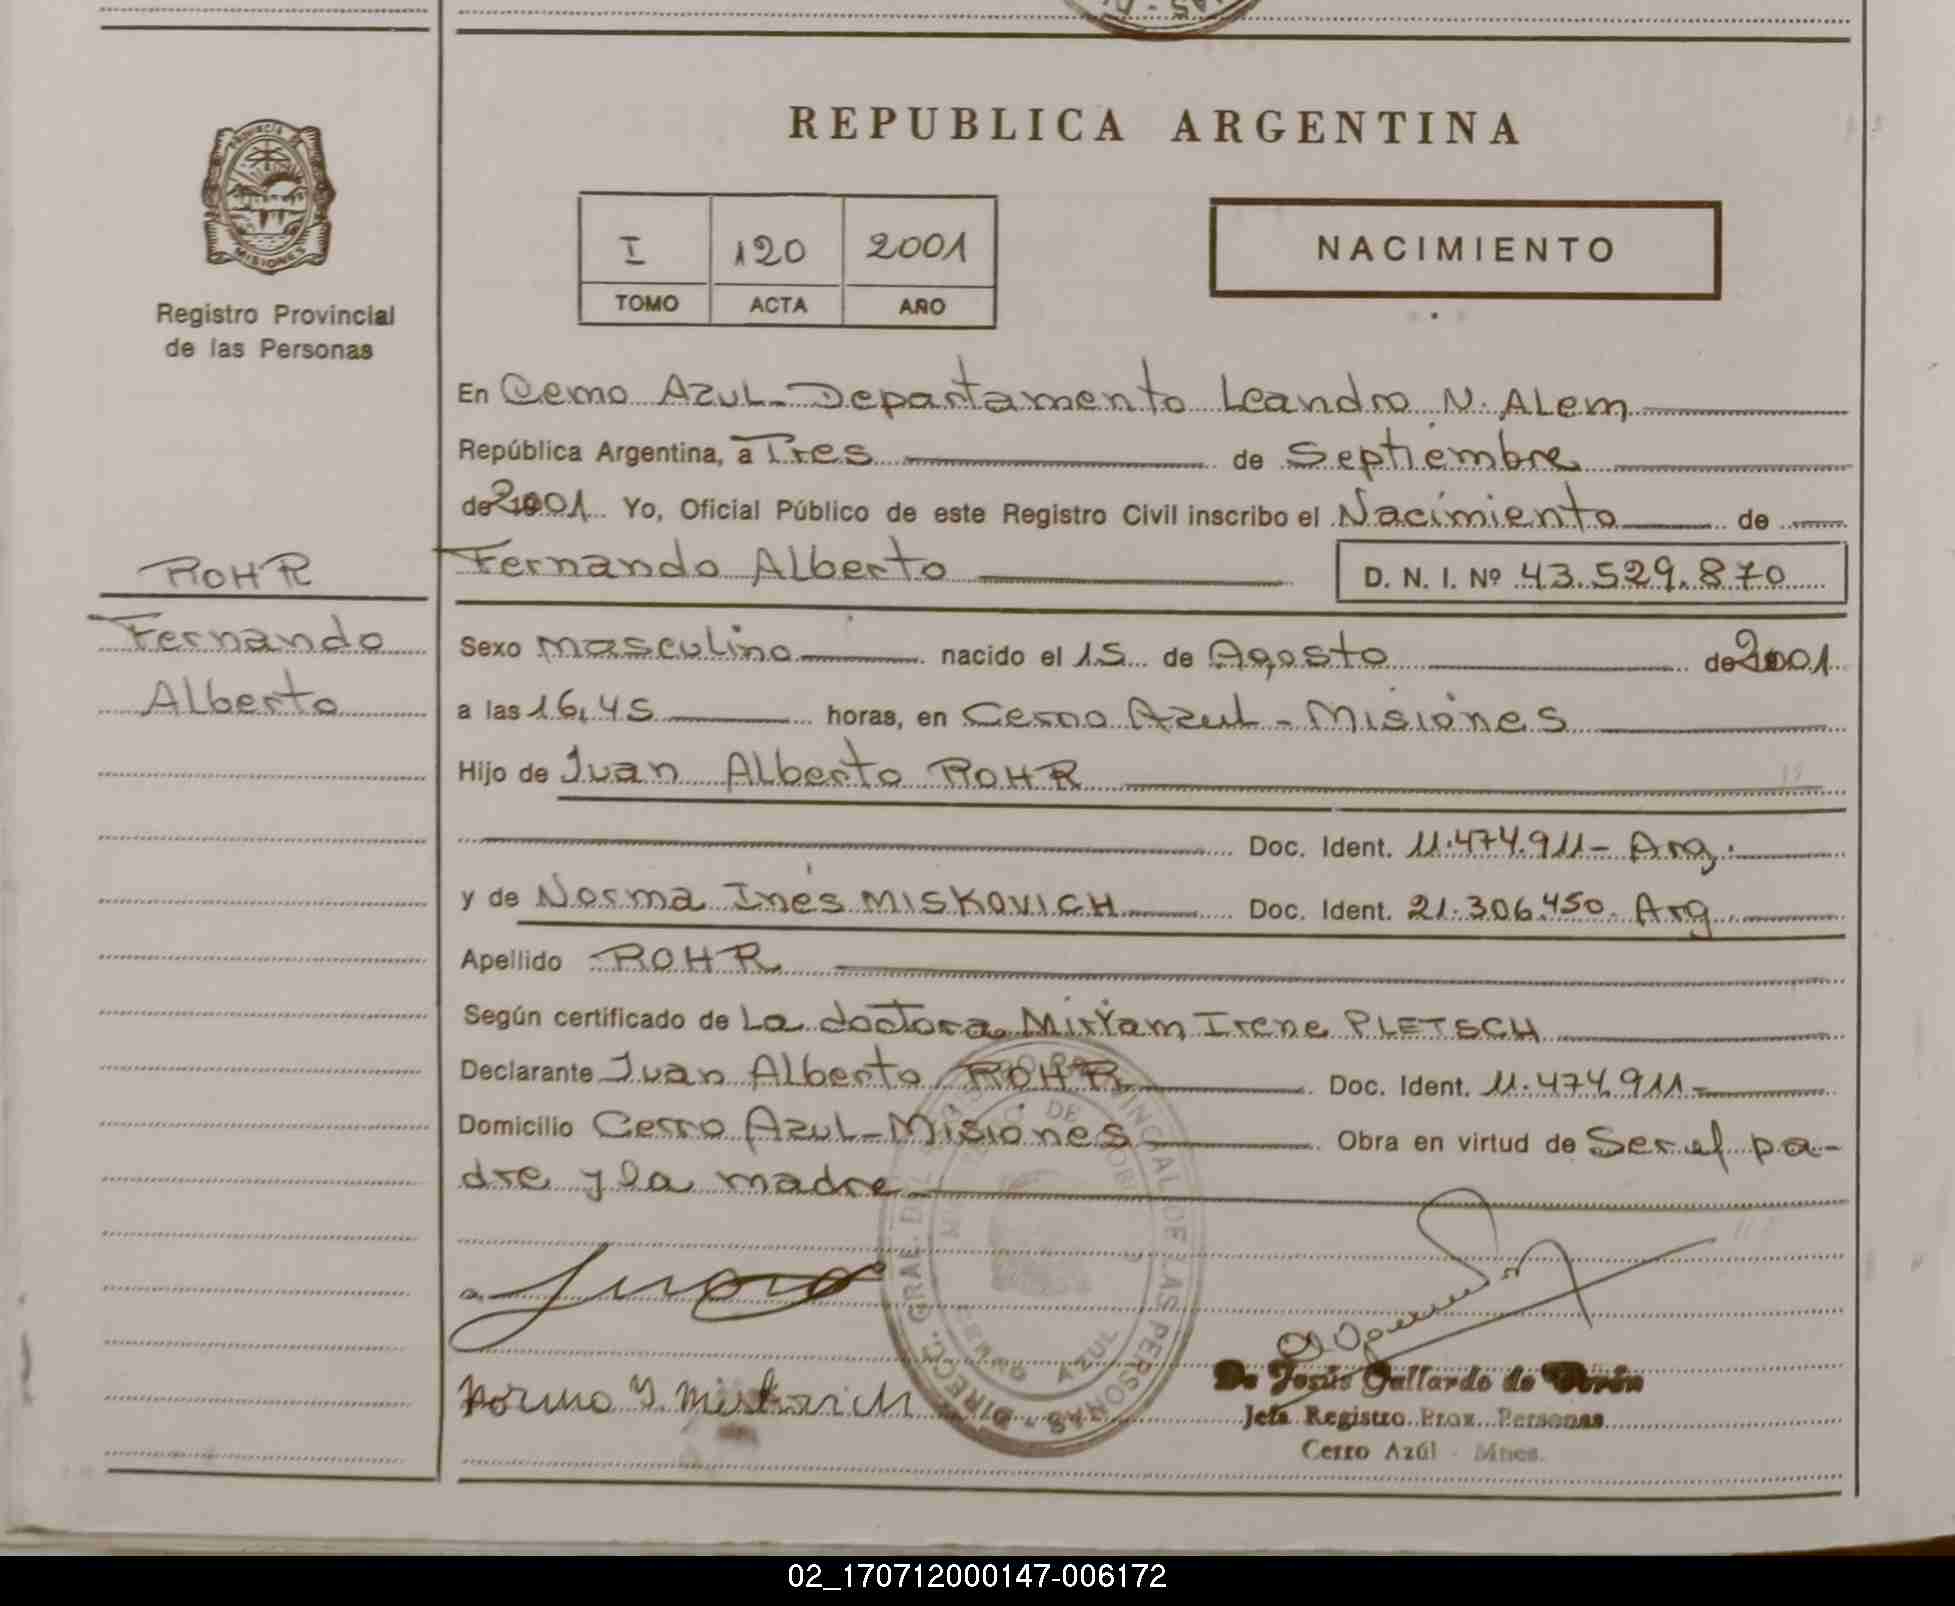 REPUBLICA ARGENTINA
PROVINCIA DE
MISIONES
Registro Provincial
de las Personas
I 120 2001
TOMO ACTA AÑO
NACIMIENTO
En Cerro Azul - Departamento Leandro N. Alem
República Argentina, a Tres de Septiembre
de 2001 Yo, Oficial Público de este Registro Civil inscribo el Nacimiento de
Fernando Alberto D. N. I. Nº 43.529.870
ROHR
Fernando
Alberto
Sexo masculino nacido el 15 de Agosto de 2001
a las 16,45 horas, en Cerro Azul - Misiones
Hijo de Juan Alberto ROHR
Doc. Ident. 11.474.911 - Arg.
y de Norma Inés MISKOVICH Doc. Ident. 21.306.450. Arg.
Apellido ROHR
Según certificado de La doctora Miryam Irene PLETSCH
Declarante Juan Alberto ROHR Doc. Ident. 11.474.911 -
Domicilio Cerro Azul - Misiones Obra en virtud de Ser el pa-
dre y la madre
DIRECC. GRAL. DEL REGISTRO PROVINCIAL DE LAS PERSONAS
CERRO AZUL
Norma I. Miskovich
De Jesús Gallardo de
Jefa Registro Prov. Personas
Cerro Azúl - Mnes.
02_170712000147-006172